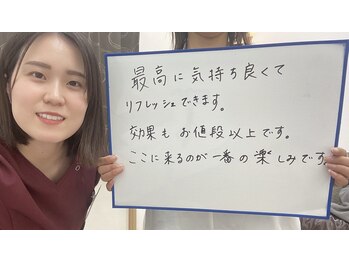 最高に気持ち良くて
リフレッシュできます。
効果もお値段以上です。
ここに来るのが一番の楽しみです